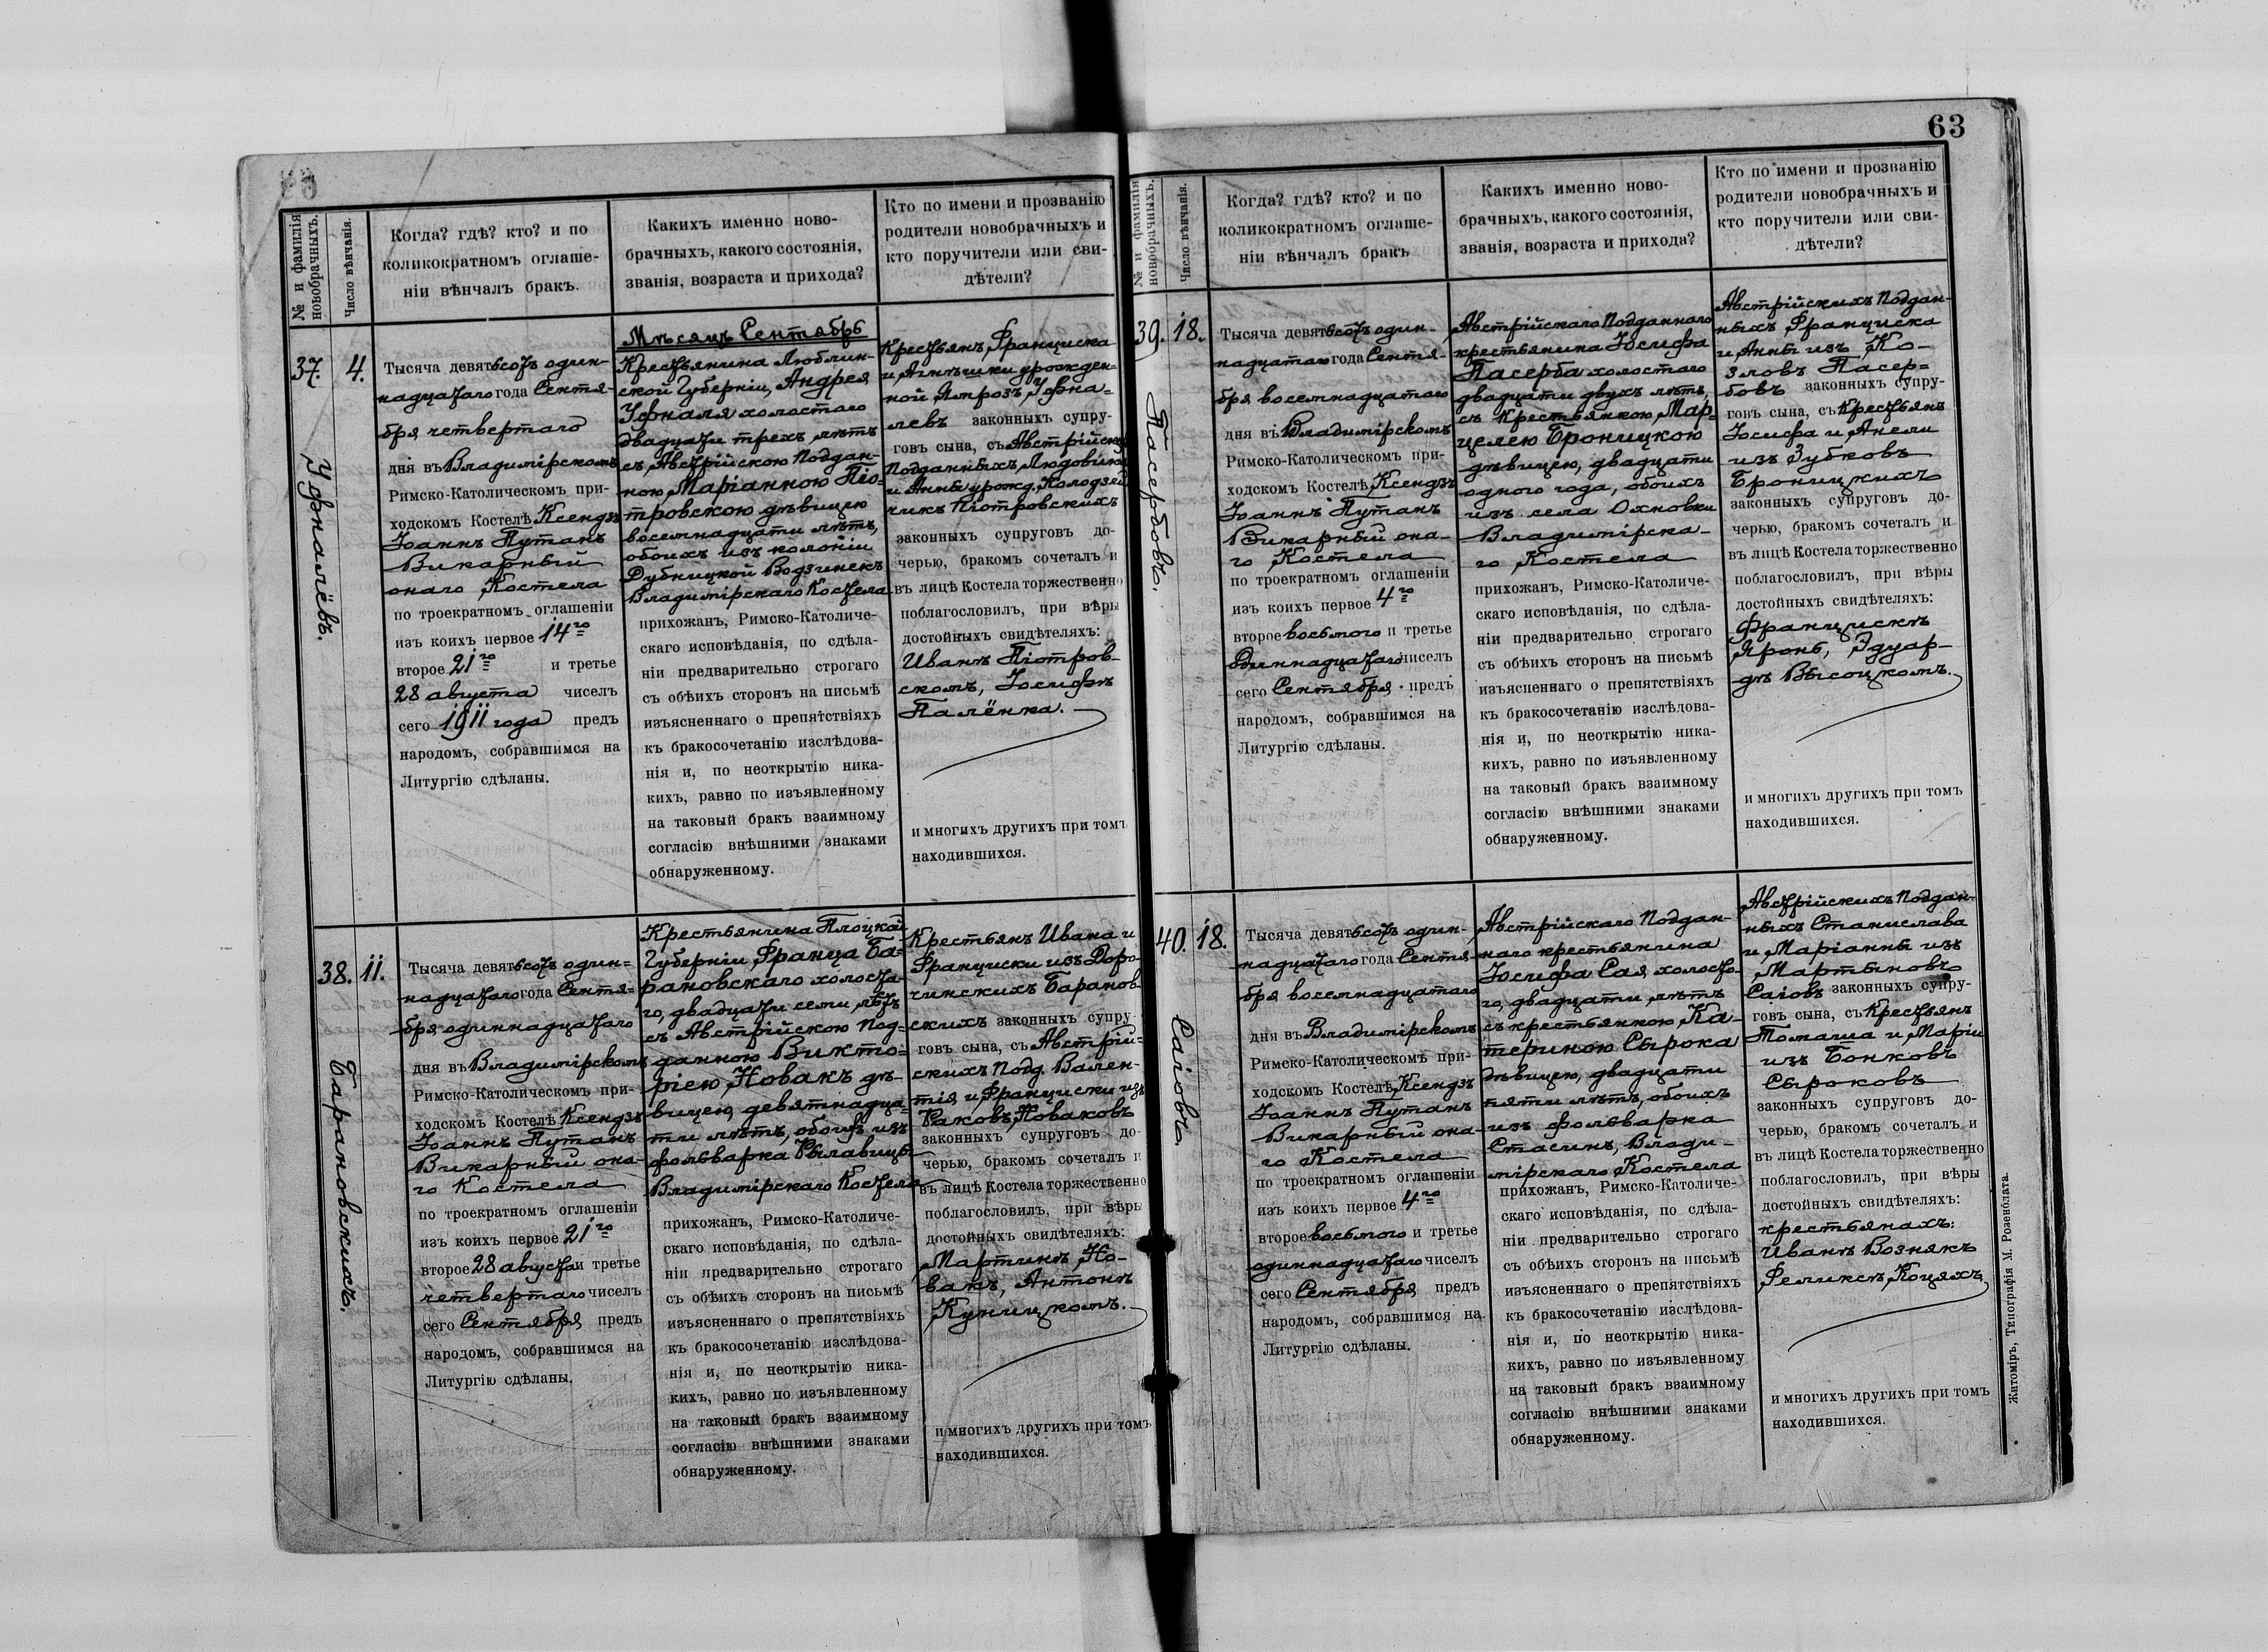 № и фамилія
новобрачныхъ.
Число вѣнчанія.
Когда? гдѣ? кто? и по
коликократномъ оглаше-
ніи вѣнчалъ бракъ.
Какихъ именно ново-
брачныхъ, какого состоянія,
званія, возраста и прихода?
Кто по имени и прозванію
родители новобрачныхъ и
кто поручители или сви-
дѣтели?
37.
4.
Уфналёвъ.
Тысяча девятьсотъ один-
надцатаго года Сентя-
бря четвертаго
дня въ Владимірскомъ
Римско-Католическомъ при-
ходскомъ Костелѣ Ксендзъ
Іоаннъ Путанъ
Викарный
онаго Костела
по троекратномъ оглашеніи
изъ коихъ первое 14го
второе 21го и третье
28 августа чиселъ
сего 1911 года предъ
народомъ, собравшимся на
Литургію сдѣланы.
Мѣсяцъ Сентябрь
Крестьянина Люблин-
ской Губерніи, Андрея
Уфналя холостаго
двадцати трехъ лѣтъ
съ Австрійскою Поддан-
ною Маріанною Піо-
тровскою дѣвицею
восемнадцати лѣтъ,
обоихъ изъ колоніи
Дубницкой Водзинекъ
Владимірскаго Костела
прихожанъ, Римско-Католиче-
скаго исповѣданія, по сдѣла-
ніи предварительно строгаго
съ обѣихъ сторонъ на письмѣ
изъясненнаго о препятствіяхъ
къ бракосочетанію изслѣдова-
нія и, по неоткрытію ника-
кихъ, равно по изъявленному
на таковый бракъ взаимному
согласію внѣшними знаками
обнаруженному.
Крестьянъ Франциска
и Агнѣшки урожден-
ной Амрозъ, Уфна-
левъ законныхъ супру-
говъ сына, съ Австрійск.
Подданныхъ Людовика
и Анны урожд. Колодзей
чикъ Піотровскихъ
законныхъ супруговъ до-
черью, бракомъ сочеталъ и
въ лицѣ Костела торжественно
поблагословилъ, при вѣры
достойныхъ свидѣтеляхъ:
Иванѣ Піотров-
скомъ, Іосифѣ
Палёнка.
и многихъ другихъ при томъ
находившихся.
38.
11.
Барановскихъ.
Тысяча девятьсотъ один=
надцатаго года Сентя=
бря одиннадцатаго
дня въ Владимірскомъ
Римско-Католическомъ при-
ходскомъ Костелѣ Ксендзъ
Іоаннъ Путанъ
Викарный она-
го Костела
по троекратномъ оглашеніи
изъ коихъ первое 21го
второе 28 августа и третье
четвертаго чиселъ
сего Сентября предъ
народомъ, собравшимся на
Литургію сдѣланы.
Крестьянина Плоцкой
Губерніи, Франца Ба-
рановскаго холоста-
го, двадцати семи лѣтъ
съ Австрійскою Под-
данною Викто-
ріею, Новакъ дѣ-
вицею, девятнадца-
ти лѣтъ, обоихъ изъ
фольварка Рылавицы
Владимірскаго Костела
прихожанъ, Римско-Католиче-
скаго исповѣданія, по сдѣла-
ніи предварительно строгаго
съ обѣихъ сторонъ на письмѣ
изъясненнаго о препятствіяхъ
къ бракосочетанію изслѣдова-
нія и, по неоткрытію ника-
кихъ, равно по изъявленному
на таковый бракъ взаимному
согласію внѣшними знаками
обнаруженному.
Крестьянъ Ивана и
Франциски изъ Доро-
чинскихъ Баранов-
скихъ законныхъ супру-
говъ сына, съ Австрій-
скихъ Подд. Вален-
тія и Франциски изъ
Раковъ, Новаковъ
законныхъ супруговъ до-
черью, бракомъ сочеталъ и
въ лицѣ Костела торжественно
поблагословилъ, при вѣры
достойныхъ свидѣтеляхъ:
Мартинѣ Но-
вакѣ, Антонѣ
Куницкомъ.
и многихъ другихъ при томъ
находившихся.
63
№ и фамилія
новобрачныхъ.
Число вѣнчанія.
Когда? гдѣ? кто? и по
коликократномъ оглаше-
ніи вѣнчалъ бракъ
Какихъ именно ново-
брачныхъ, какого состоянія,
званія, возраста и прихода?
Кто по имени и прозванію
родители новобрачныхъ и
кто поручители или сви-
дѣтели?
39.
18.
Пасербовъ.
Тысяча девятьсотъ один-
надцатаго года Сентя-
бря восемнадцатаго
дня въ Владимірскомъ
Римско-Католическомъ при-
ходскомъ Костелѣ, Ксендзъ
Іоаннъ Путанъ
Викарный она-
го Костела
по троекратномъ оглашеніи
изъ коихъ первое 4го
второе восьмого и третье
Одиннадцатаго чиселъ
сего Сентября предъ
народомъ, собравшимся на
Литургію сдѣланы.
Австрійскаго Подданнаго
крестьянина Іосифа
Пасерба холостаго
двадцати двухъ лѣтъ,
съ Крестьянкою, Мар-
целею Броницкою
дѣвицею, двадцати
одного года, обоихъ
изъ села Охновки
Владимірска-
го Костела
прихожанъ, Римско-Католиче-
скаго исповѣданія, по сдѣла-
ніи предварительно строгаго
съ обѣихъ сторонъ на письмѣ
изъясненнаго о препятствіяхъ
къ бракосочетанію изслѣдова-
нія и, по неоткрытію ника-
кихъ, равно по изъявленному
на таковый бракъ взаимному
согласію внѣшними знаками
обнаруженному.
Австрійскихъ Поддан-
ныхъ Франциска
и Анны изъ Ко-
зловъ Пасер=
бовъ законныхъ супру-
говъ сына, съ Крестьянъ
Іосифа и Анели
изъ Зубковъ
Броницкихъ
законныхъ супруговъ до-
черью, бракомъ сочеталъ и
въ лицѣ Костела торжественно
поблагословилъ, при вѣры
достойныхъ свидѣтеляхъ:
Францискѣ
Яронь, Эдуар-
дѣ Высоцкомъ.
и многихъ другихъ при томъ
находившихся.
40.
18.
Саіовъ
Тысяча девятьсотъ один-
надцатаго года Сентя-
бря восемнадцатаго
дня въ Владимірскомъ
Римско-Католическомъ при-
ходскомъ Костелѣ, Ксендзъ
Іоаннъ Путанъ
Викарный она-
го Костела
по троекратномъ оглашеніи
изъ коихъ первое 4го
второе восьмого и третье
одиннадцатаго чиселъ
сего Сентября предъ
народомъ, собравшимся на
Литургію сдѣланы.
Австрійскаго Поддан-
наго крестьянина
Іосифа Сая, холосто-
го, двадцати лѣтъ
съ крестьянкою, Ка-
териною Сырока
дѣвицею, двадцати
пяти лѣтъ, обоихъ
изъ фольварка
Стасинъ, Влади-
мірскаго Костела
прихожанъ, Римско-Католиче-
скаго исповѣданія, по сдѣла-
ніи предварительно строгаго
съ обѣихъ сторонъ на письмѣ
изъясненнаго о препятствіяхъ
къ бракосочетанію изслѣдова-
нія и, по неоткрытію ника-
кихъ, равно по изъявленному
на таковый бракъ взаимному
согласію внѣшними знаками
обнаруженному.
Австрійскихъ Поддан-
ныхъ Станислава
и Маріанны изъ
Мартыновъ
Саіовъ законныхъ супру-
говъ сына, съ Крестьянъ
Томаша и Маріи
изъ Бонковъ
Сыроковъ
законныхъ супруговъ до-
черью, бракомъ сочеталъ и
въ лицѣ Костела торжественно
поблагословилъ, при вѣры
достойныхъ свидѣтеляхъ:
крестьянахъ:
Иванѣ Вознякѣ
Феликсѣ, Коцяхъ
и многихъ другихъ при томъ
находившихся.
Житоміръ, Типографія М. Розенблата.